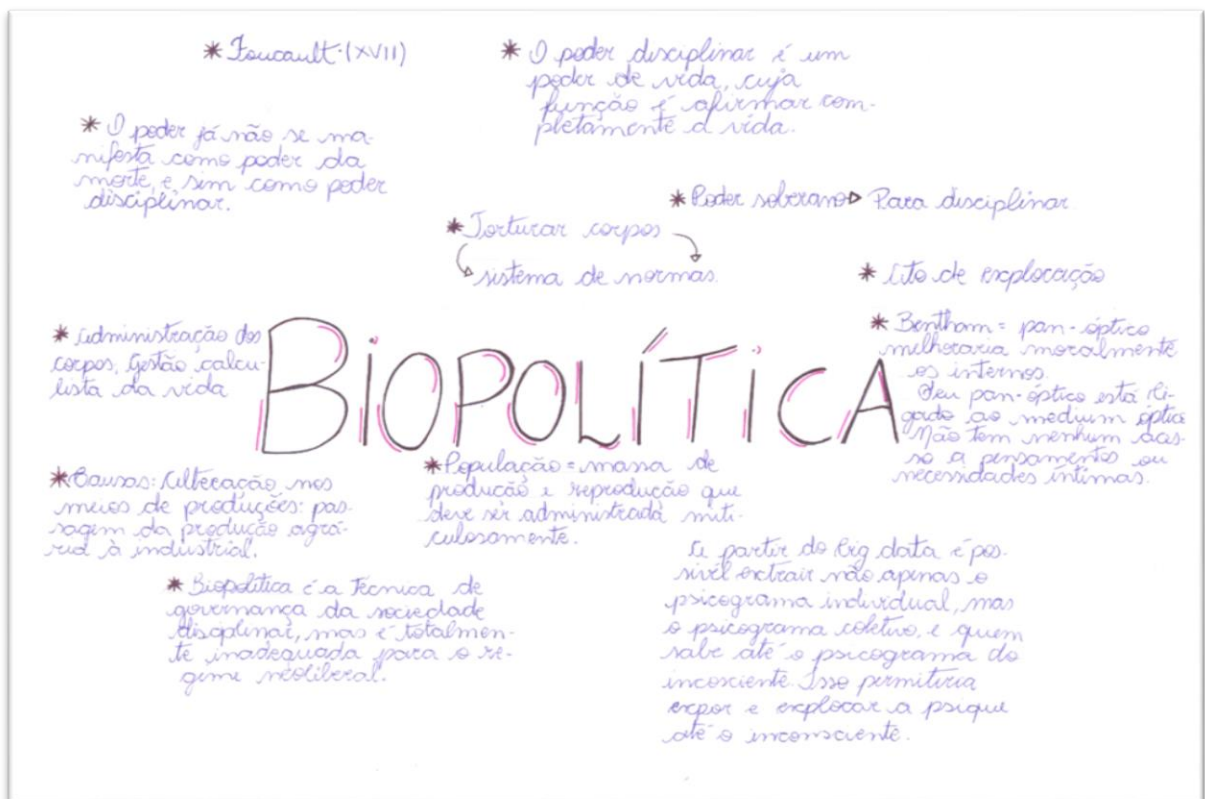 * Foucault (XVII)
* O poder disciplinar é um
poder de vida, cuja
função é afirmar com-
pletamente a vida.
* O poder já não se ma-
nifesta como poder da
morte, e sim como poder
disciplinar.
* Poder soberano ▷ Para disciplinar
* Torturar corpos
sistema de normas.
* Ato de exploração
* Administração dos
corpos, Gestão calcu-
lista da vida
BIOPOLÍTICA
* Bentham = pan-óptico
melhoraria moralmente
os internos.
Seu pan-óptico está li-
gado ao medium óptico
Não tem nenhum aces-
so a pensamentos ou
necessidades íntimas.
* Causas: Alteração nos
meios de produções: pas-
sagem da produção agrá-
ria à industrial.
* População = massa de
produção e reprodução que
deve ser administrada miti-
culosamente.
* Biopolítica é a Técnica de
governança da sociedade
disciplinar, mas é totalmen-
te inadequada para o re-
gime neoliberal.
A partir do big data é pos-
sível extrair não apenas o
psicograma individual, mas
o psicograma coletivo, e quem
sabe até o psicograma do
incosciente. Isso permitiria
expor e explocar a psique
até o inconsciente.